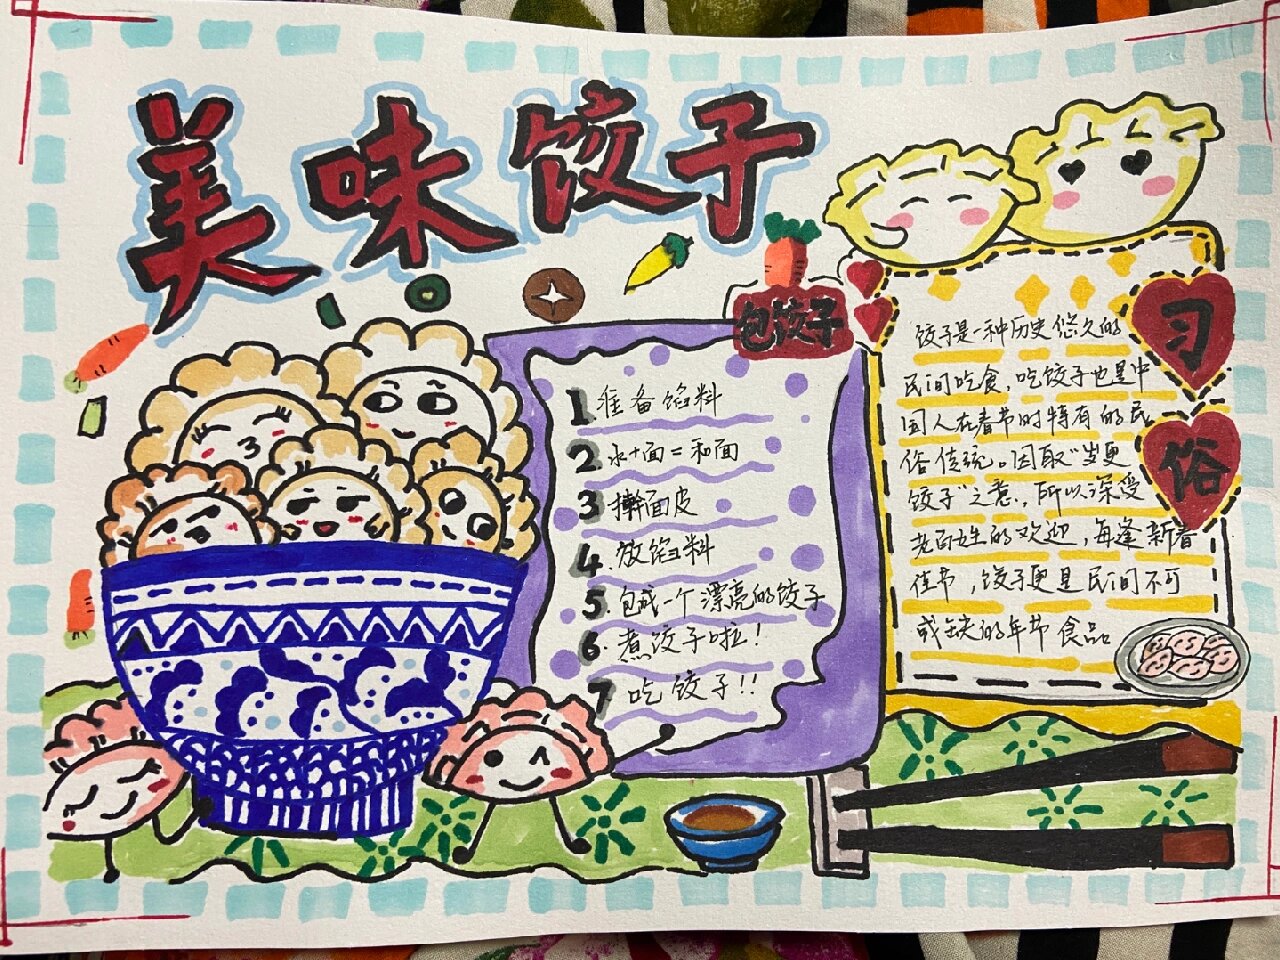 美味饺子
包饺子
1 准备馅料
2 水+面=和面
3 擀面皮
4. 放馅料
5. 包成一个漂亮的饺子
6. 煮饺子啦!
7 吃饺子!!
习俗
饺子是一种历史悠久的
民间吃食,吃饺子也是中
国人在春节时特有的民
俗传统。因取“岁更
饺子”之意,所以深受
老百姓的欢迎,每逢新春
佳节,饺子更是民间不可
或缺的年节食品